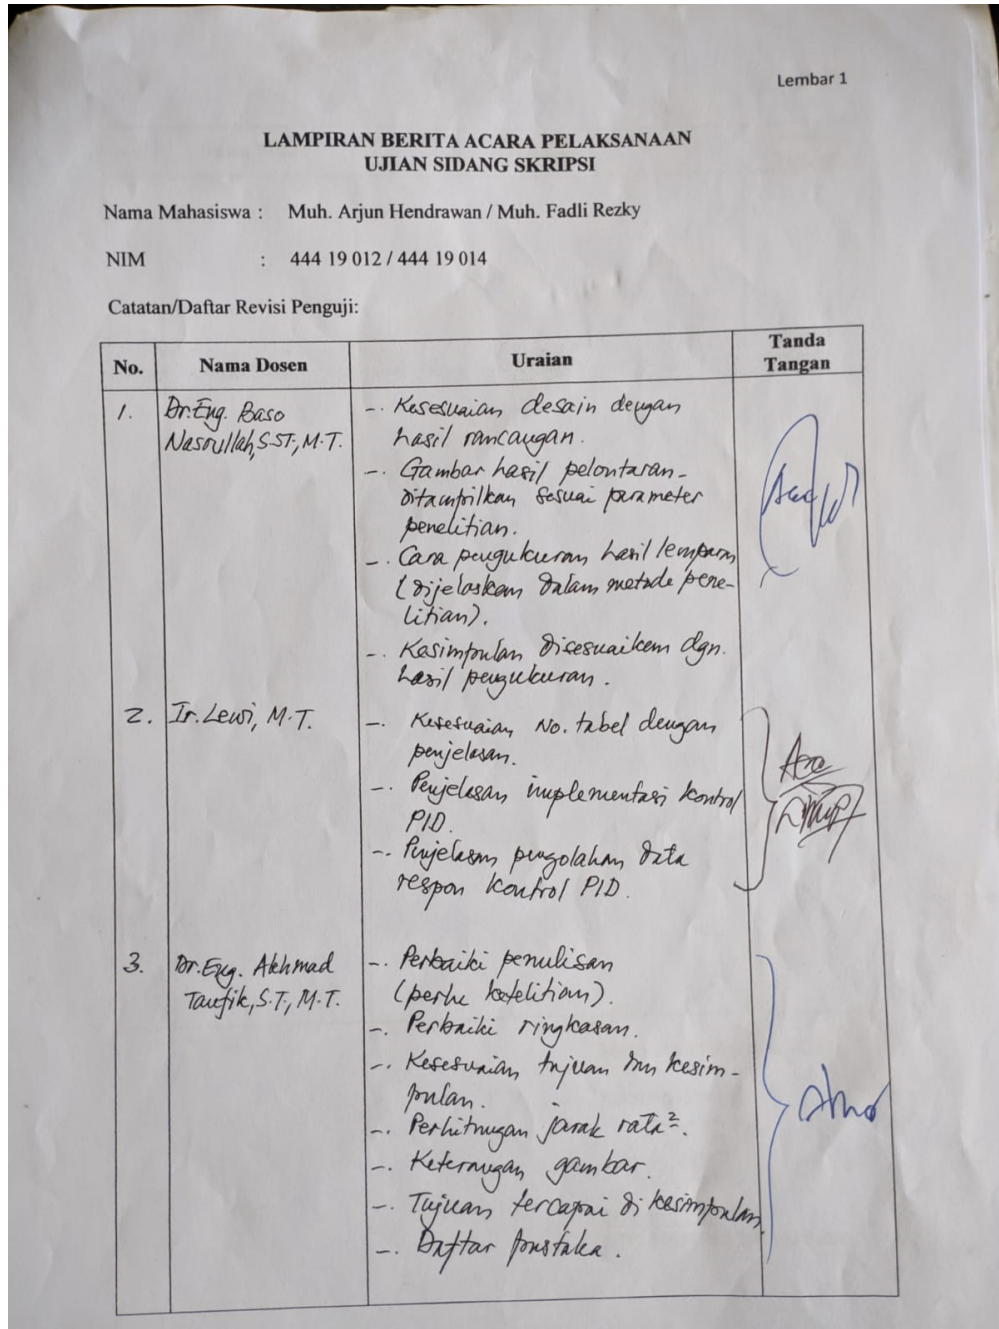 Lembar 1
LAMPIRAN BERITA ACARA PELAKSANAAN
UJIAN SIDANG SKRIPSI
Nama Mahasiswa : Muh. Arjun Hendrawan / Muh. Fadli Rezky
NIM : 444 19 012 / 444 19 014
Catatan/Daftar Revisi Penguji:
No. Nama Dosen Uraian Tanda Tangan
1. Dr.Eng. Baso
Nasrullah, S.ST., M.T.
-. Kesesuaian desain dengan
hasil rancangan.
-. Gambar hasil pelontaran
ditampilkan sesuai parameter
penelitian.
-. Cara pengukuran hasil lemparan
(dijelaskan dalam metode pene-
litian).
-. Kesimpulan disesuaikan dgn.
hasil pengukuran.
2. Ir. Lewi, M.T.
-. Kesesuaian No. tabel dengan
penjelasan.
-. Penjelasan implementasi kontrol
PID.
-. Penjelasan pengolahan data
respon kontrol PID.
3. Dr.Eng. Akhmad
Taufik, S.T., M.T.
-. Perbaiki penulisan
(perlu ketelitian).
-. Perbaiki ringkasan.
-. Kesesuaian tujuan dan kesim-
pulan.
-. Perhitungan jarak rata².
-. Keterangan gambar.
-. Tujuan tercapai di kesimpulan.
-. Daftar pustaka.